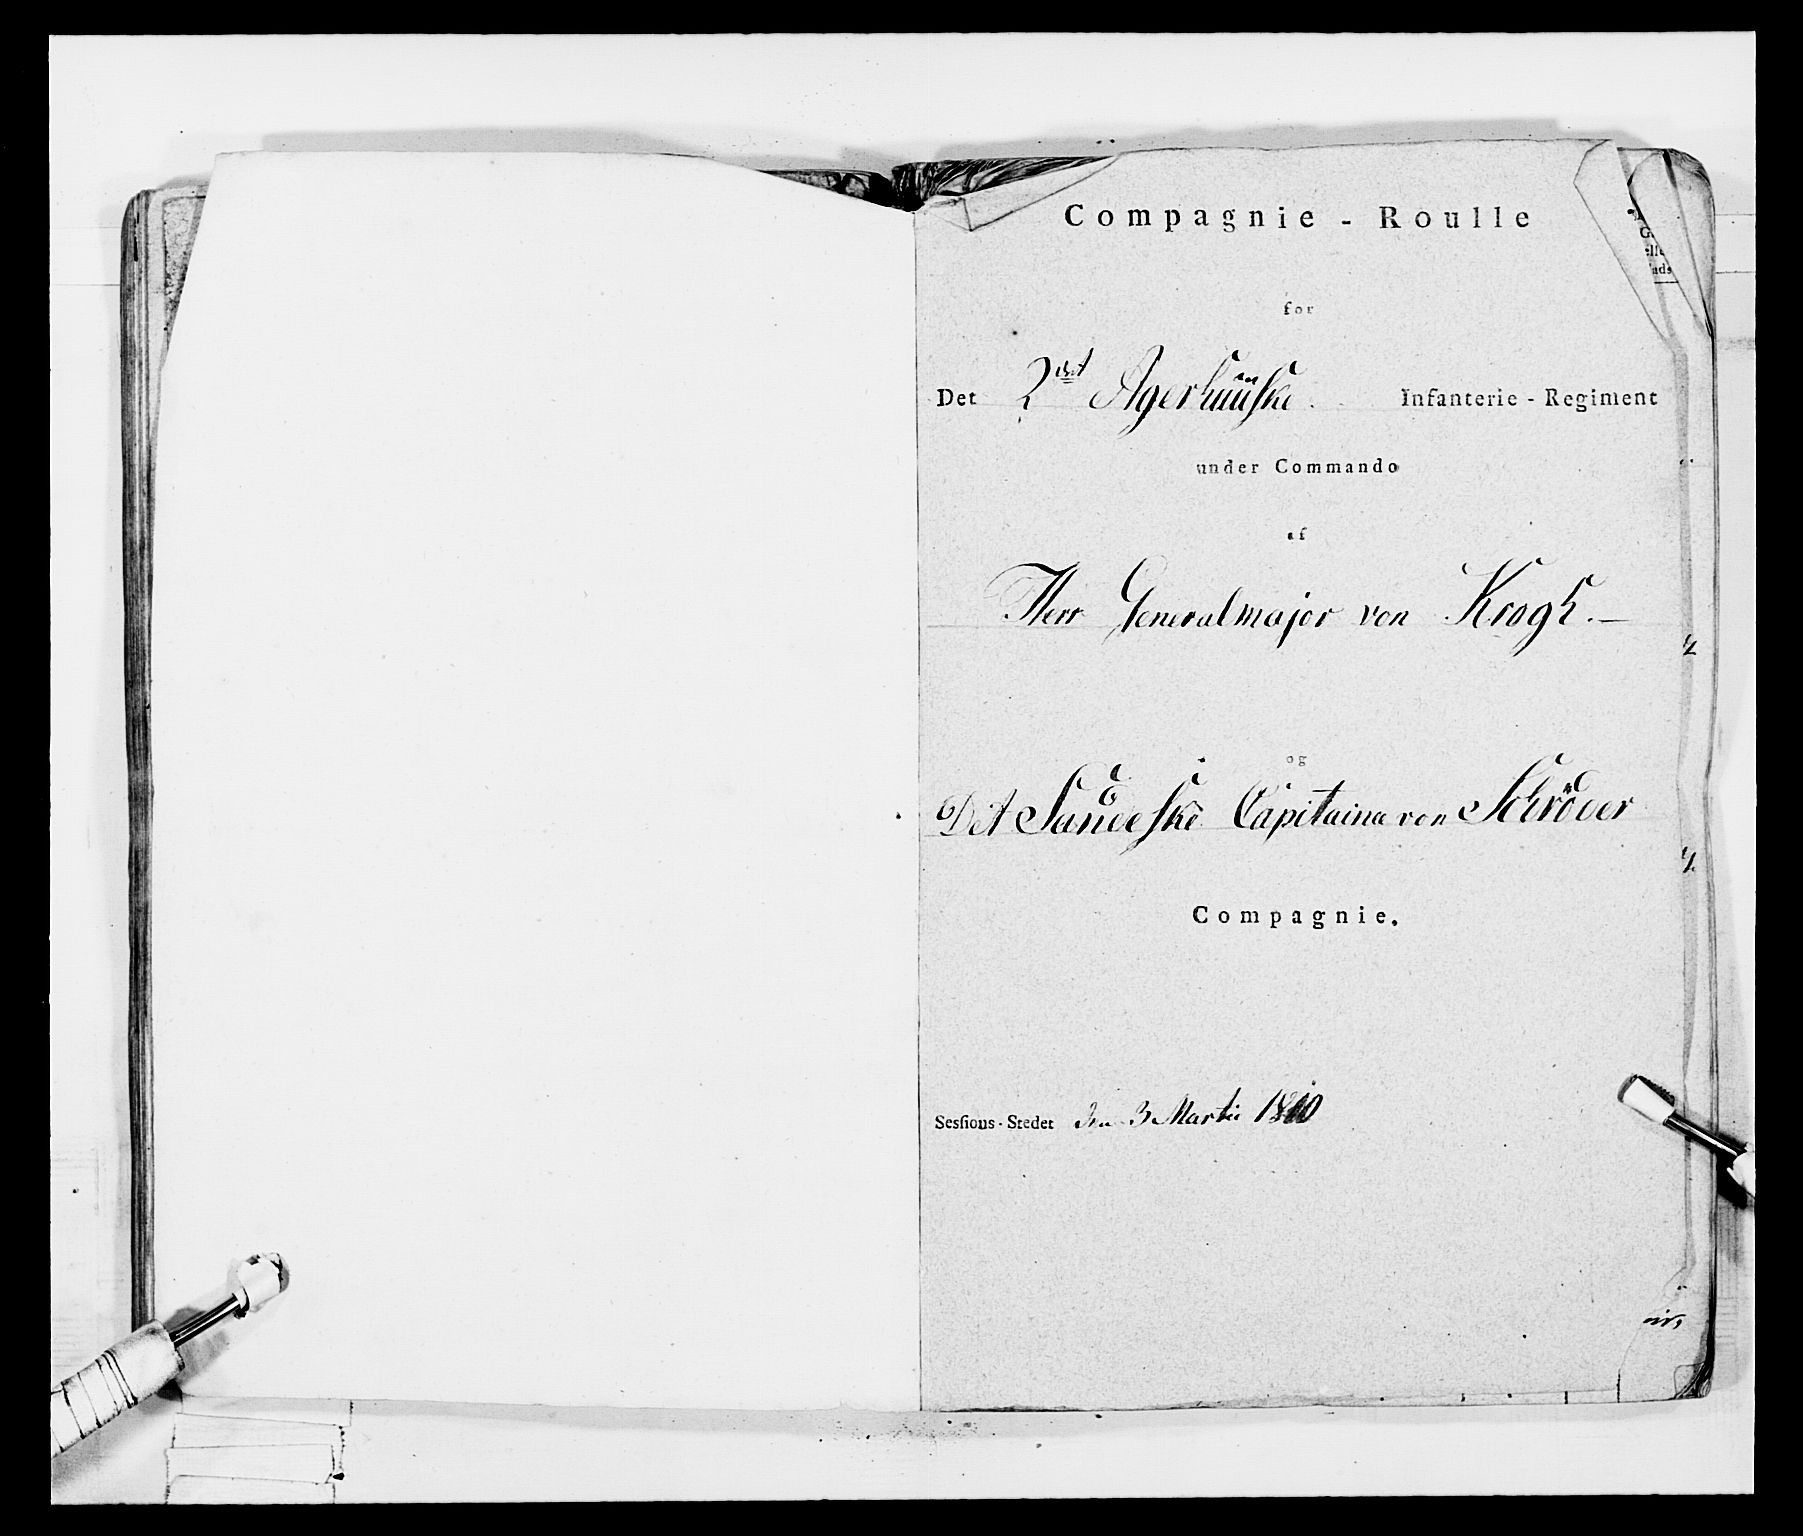 Compagnie - Roulle
for
Det 2det Agerhuusske Infanterie - Regiment
under Commando
af
Herr Generalmajor von Krogh. —
og
Det Sandeske Capitaine von Schröder
Compagnie.
Sessions-Stedet den 3 Martii 1810